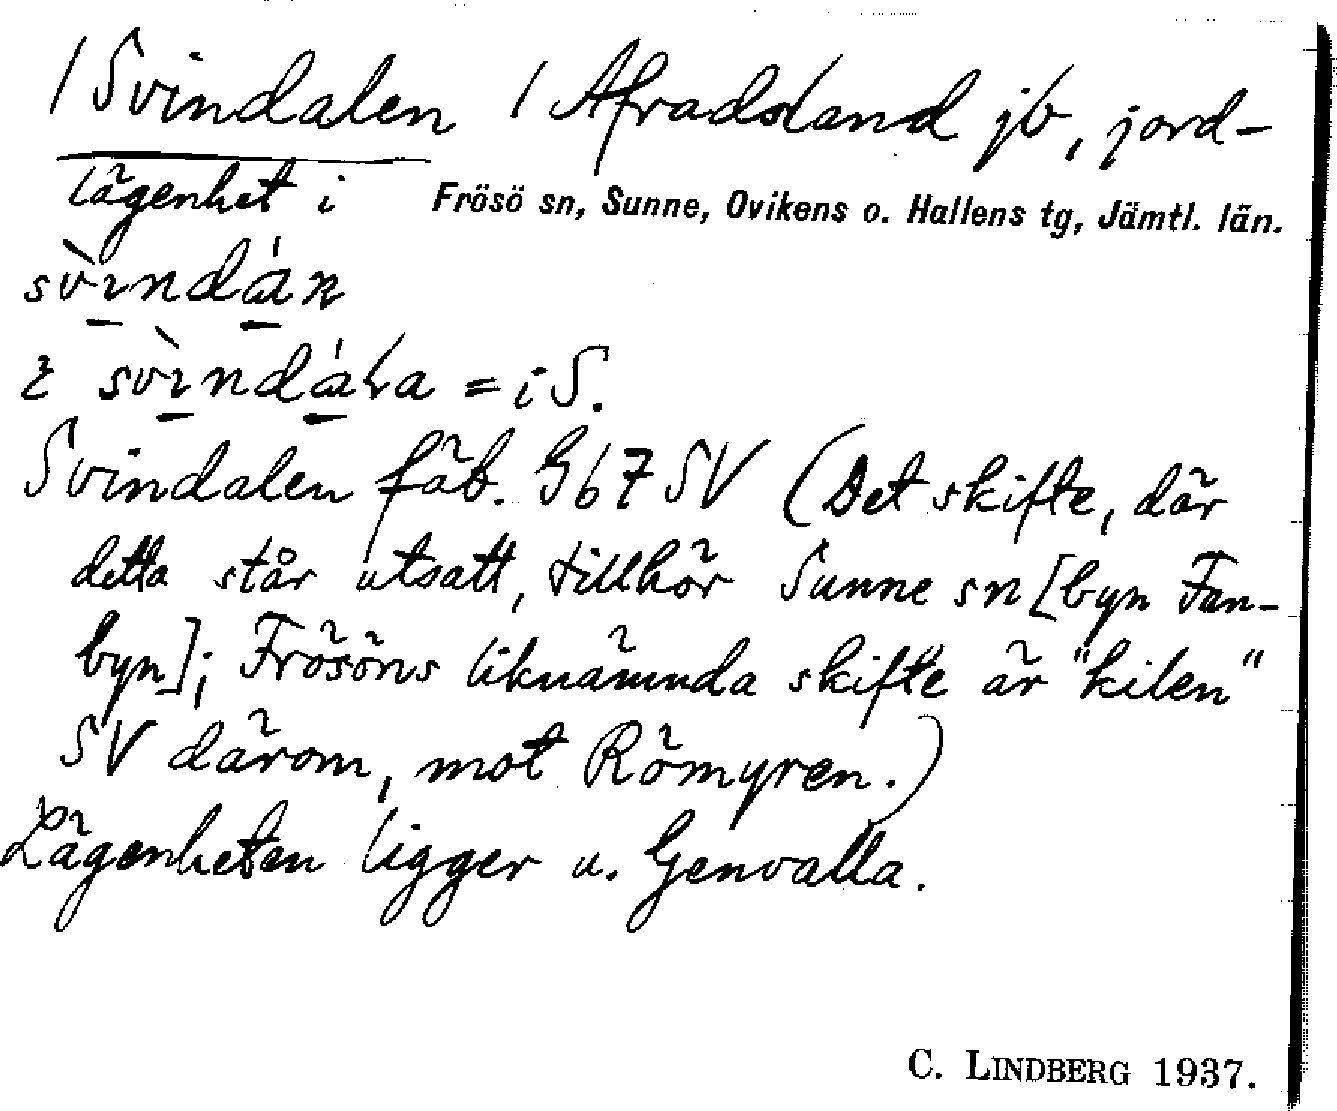 /Svindalen / Afradsland jb, jord-
lägenhet i Frösö sn, Sunne, Ovikens o. Hallens tg, Jämtl. län.
svìndán
svìndála = i S.
Svindalen fäb. G67 SV (Det skifte, där
detta står utsatt, tillhör Sunne sn [byn Fan-
byn]; Frösöns liknämnda skifte är "kilen"
SV därom, mot Römyren.)
Lägenheten ligger u. Genvalla.
C. LINDBERG 1937.